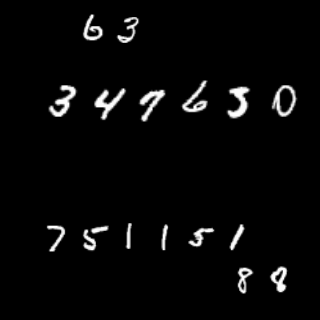 63
347650
751151
88